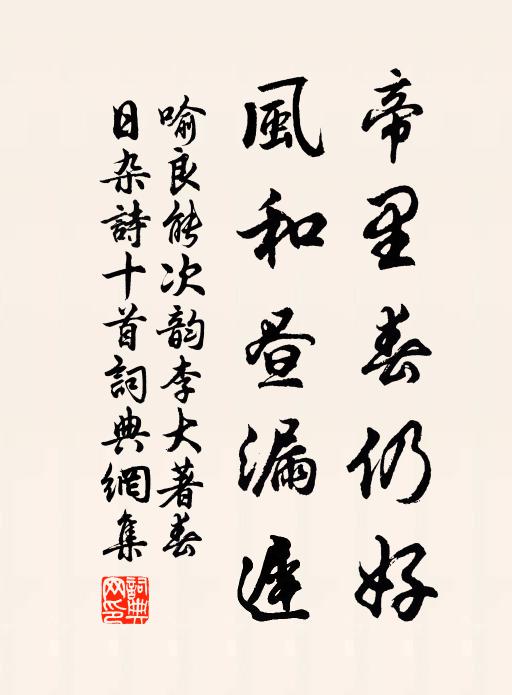 帝里春仍好
風和昼漏遲
喻良能次韵李大著春
日杂詩十首詞典網集
詞典网印